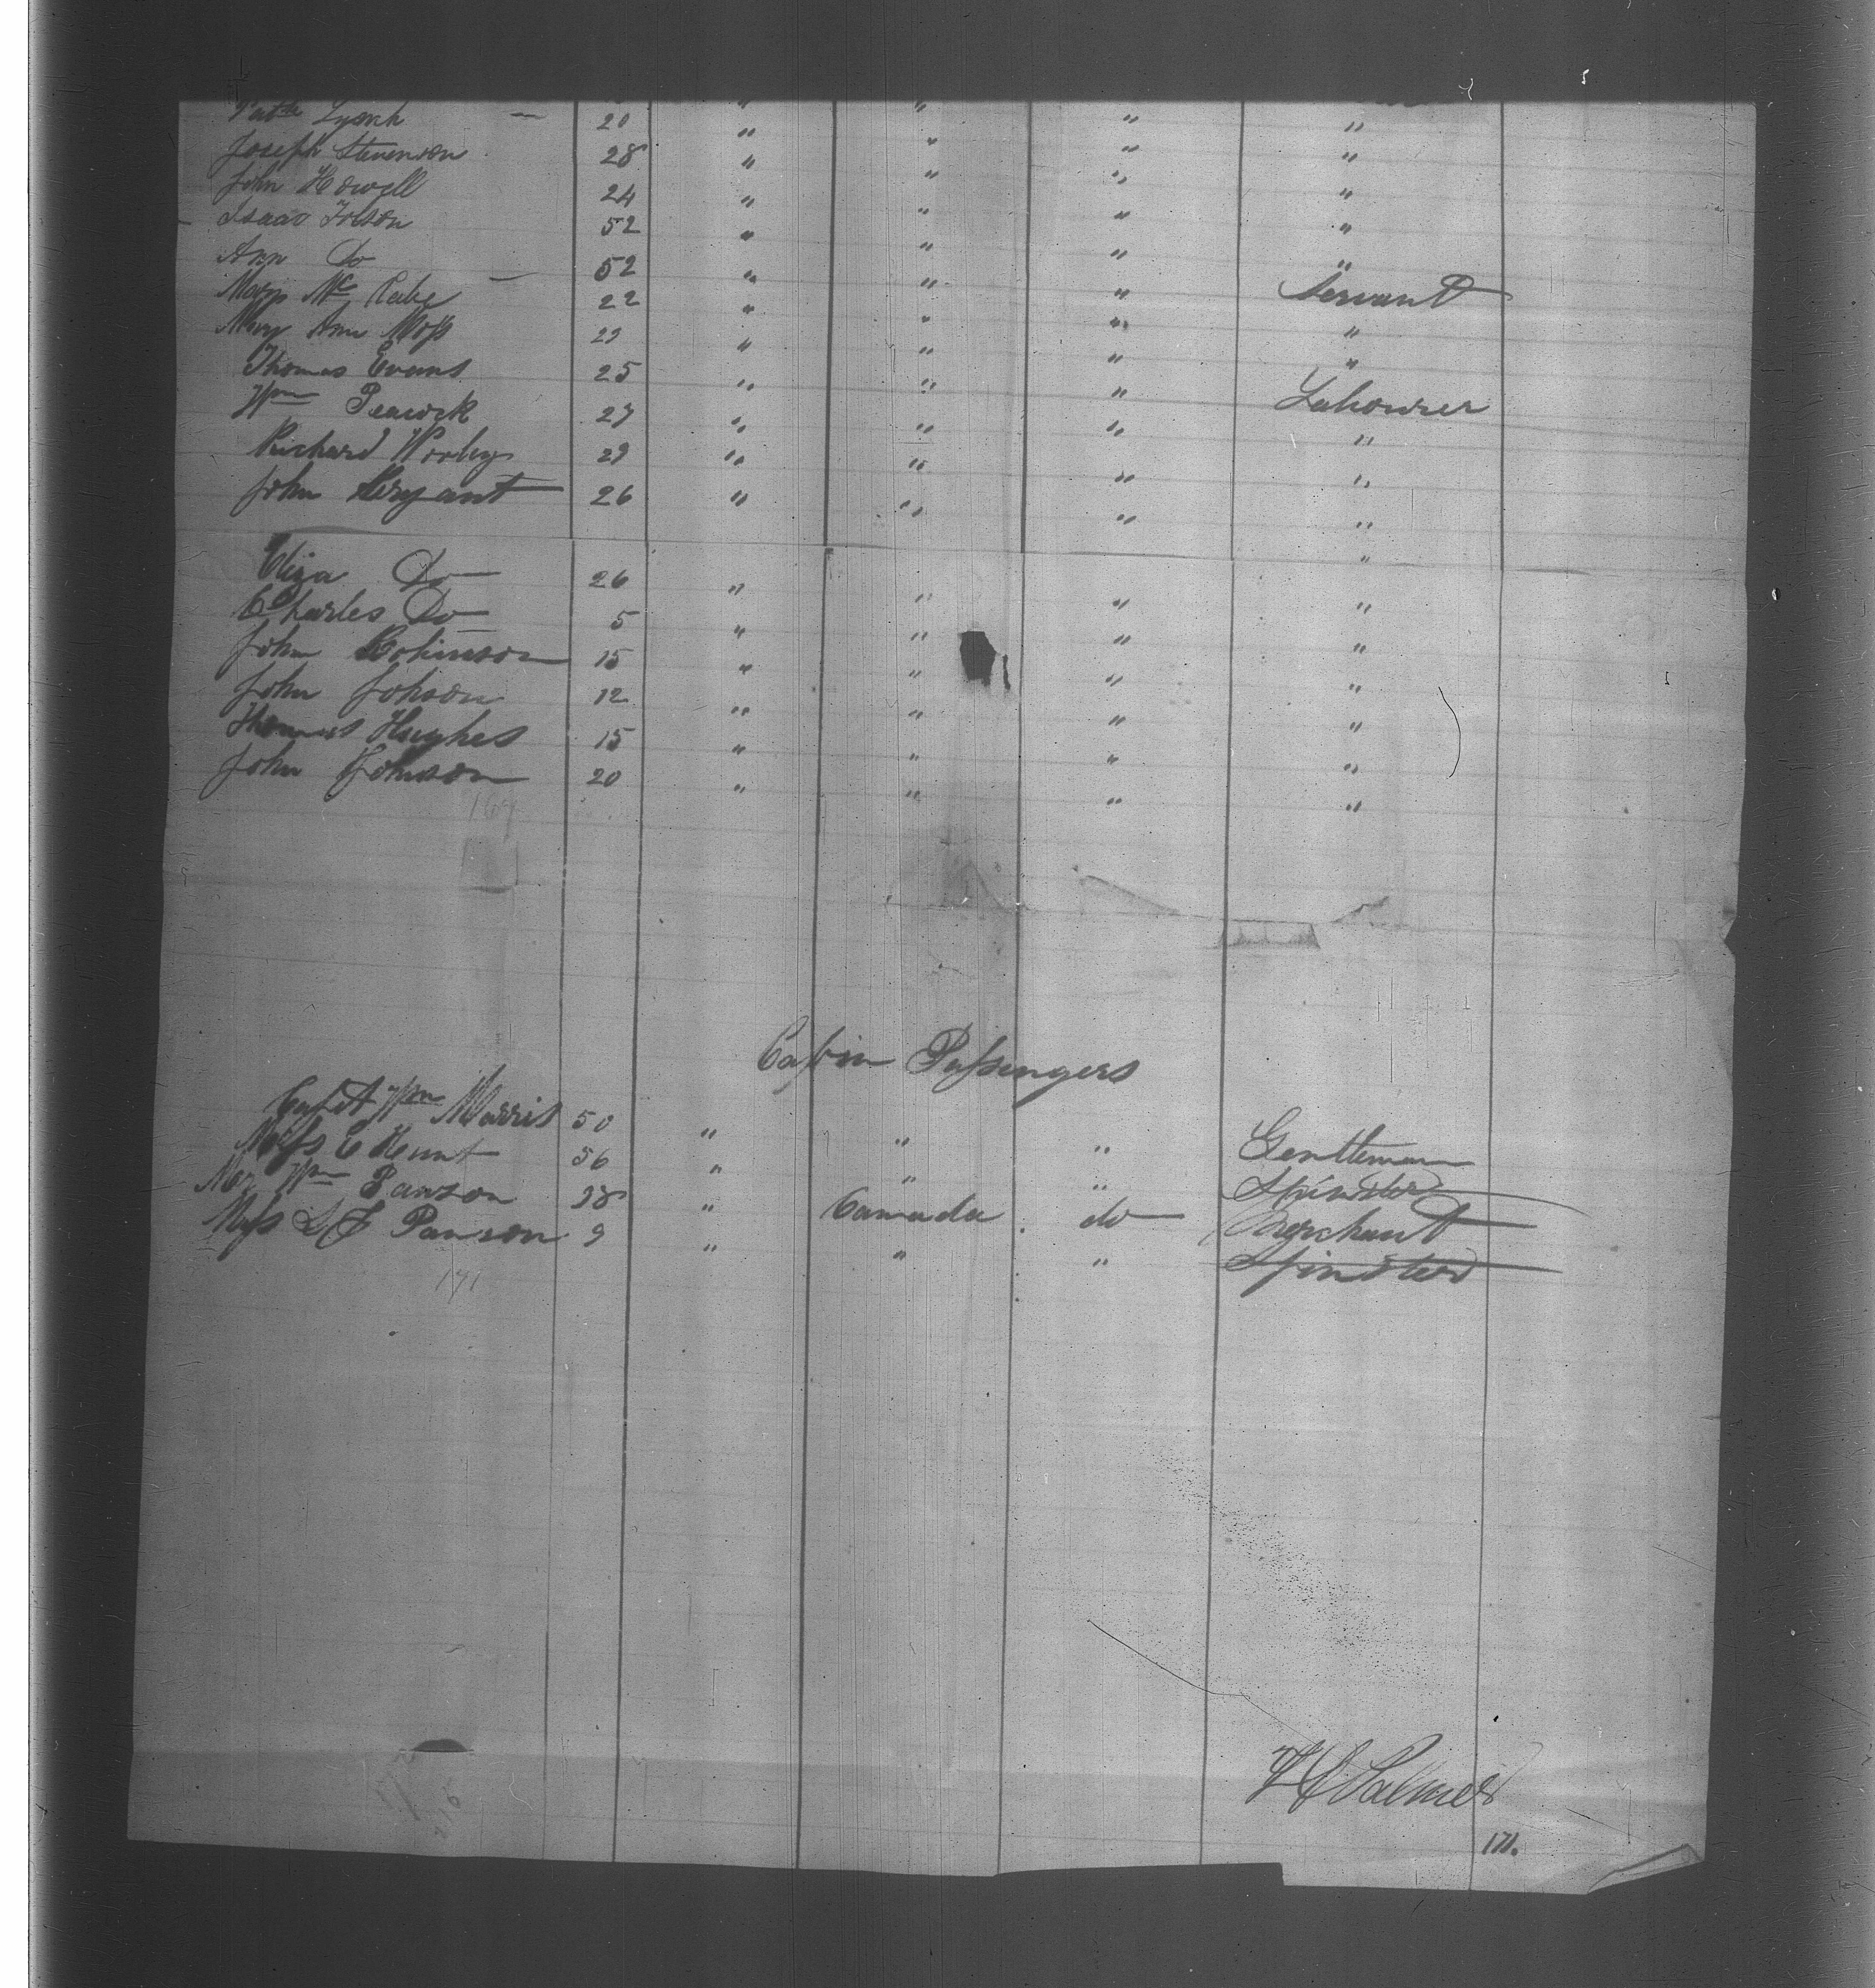 Patk Lynch — 20 " " " "
Joseph Stevenson 28 " " " "
John Howell 24 " " " "
Isaac Tolson 52 " " " "
Ann Do 52 " " " "
Mary Mc Cabe 22 " " " Servant
Mary Ann Moss 22 " " " "
Thomas Evans 25 " " " "
Wm Peacock 27 " " " Labourer
Richard Worley 29 " " " "
John Bryant 26 " " " "
Eliza Do 26 " " " "
Charles Do 5 " " " "
John Robinson 15 " " " "
John Johson 12 " " " "
Thomas Hughes 15 " " " "
John Johnson 20 " " " "
167
Cabin Passengers
Capt Wm Morris 50 " " " Gentleman
Miss E Hunt 56 " " " Spinster
Mr Wm Pawson 28 " Canada do Merchant
Miss L J Pawson 9 " " " Spinster
171
171.